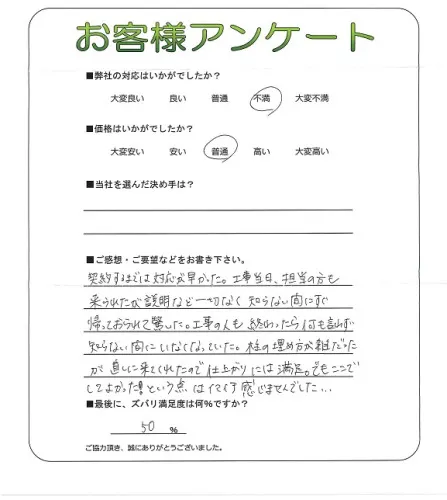 お客様アンケート
■弊社の対応はいかがでしたか?
大変良い 良い 普通 不満 大変不満
■価格はいかがでしたか?
大変安い 安い 普通 高い 大変高い
■当社を選んだ決め手は?
■ご感想・ご要望などをお書き下さい。
契約するまでは対応が早かった。工事当日、担当の方も
来られたが説明など一切なく 知らない間にすぐ
帰っておられて驚いた。工事の人も 終わったら何も言わず
知らない間にいなくなっていた。柱の埋め方が雑だった
が 直しに来てくれたので仕上がりには満足。でもここで
してよかった!という点は 感じませんでした…
■最後に、ズバリ満足度は何%ですか?
50 %
ご協力頂き、誠にありがとうございました。